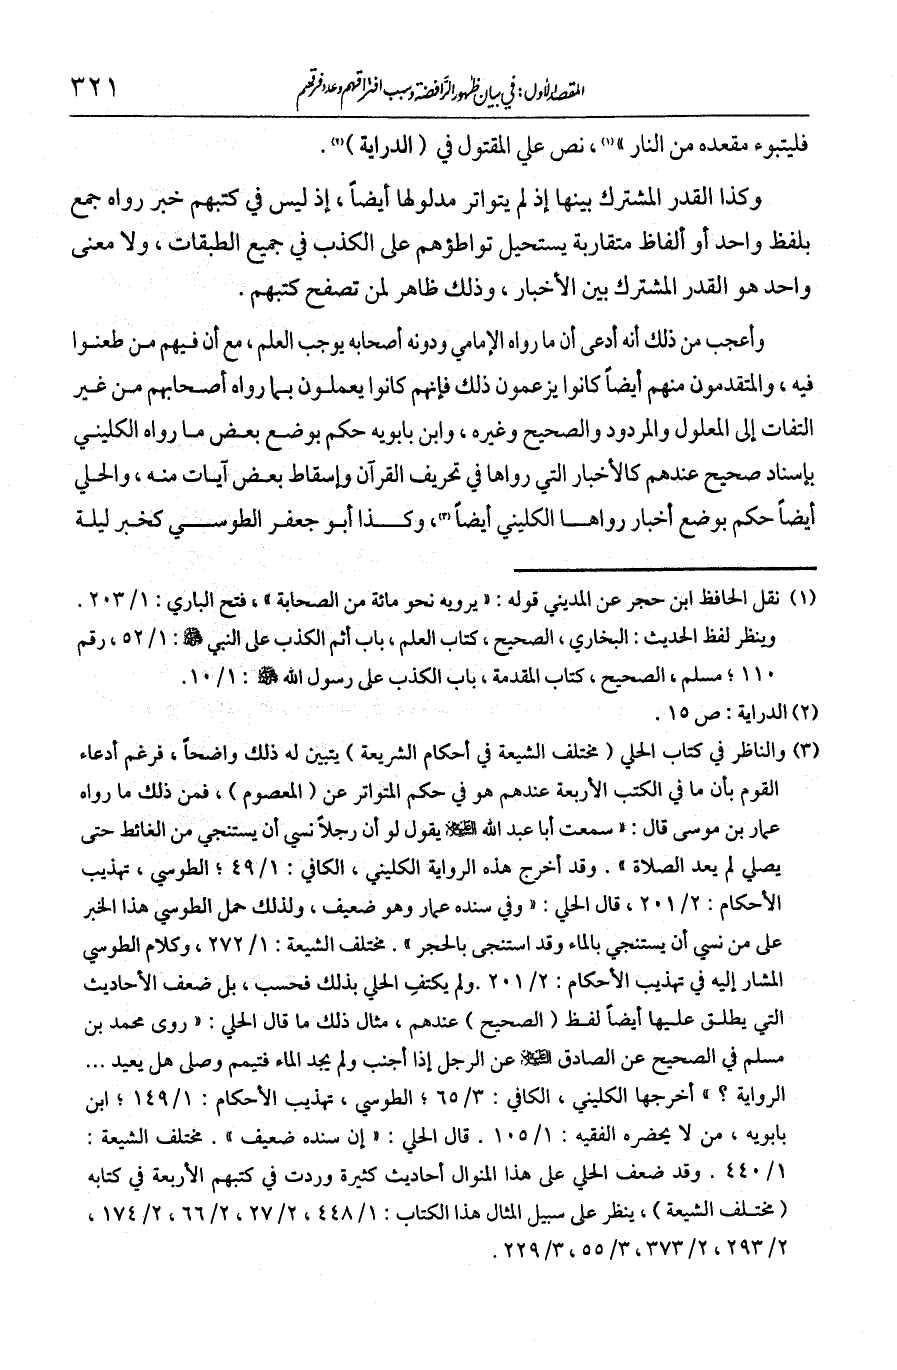 المقصد الأول : في بيان ظهور الرافضة وسبب افتراقهم وعدد فرقهم ٣٢١
فليتبوء مقعده من النار »(١) ، نص علي المقتول في ( الدراية )(٢) .
وكذا القدر المشترك بينها إذ لم يتواتر مدلولها أيضاً ، إذ ليس في كتبهم خبر رواه جمع
بلفظ واحد أو ألفاظ متقاربة يستحيل تواطؤهم على الكذب في جميع الطبقات ، ولا معنى
واحد هو القدر المشترك بين الأخبار ، وذلك ظاهر لمن تصفح كتبهم .
وأعجب من ذلك أنه أدعى أن ما رواه الإمامي ودونه أصحابه يوجب العلم ، مع أن فيهم من طعنوا
فيه ، والمتقدمون منهم أيضاً كانوا يزعمون ذلك فإنهم كانوا يعملون بما رواه أصحابهم من غير
التفات إلى المعلول والمردود والصحيح وغيره ، وابن بابويه حكم بوضع بعض ما رواه الكليني
بإسناد صحيح عندهم كالأخبار التي رواها في تحريف القرآن وإسقاط بعض آيات منه ، والحلي
أيضاً حكم بوضع أخبار رواها الكليني أيضاً(٣) ، وكذا أبو جعفر الطوسي كخبر ليلة
(١) نقل الحافظ ابن حجر عن المديني قوله : « يرويه نحو مائة من الصحابة » ، فتح الباري : ١/ ٢٠٣ .
وينظر لفظ الحديث : البخاري ، الصحيح ، كتاب العلم ، باب أثم الكذب على النبي ﷺ : ١/ ٥٢ ، رقم
١١٠ ؛ مسلم ، الصحيح ، كتاب المقدمة ، باب الكذب على رسول الله ﷺ : ١/ ١٠ .
(٢) الدراية : ص ١٥ .
(٣) والناظر في كتاب الحلي ( مختلف الشيعة في أحكام الشريعة ) يتبين له ذلك واضحاً ، فرغم أدعاء
القوم بأن ما في الكتب الأربعة عندهم هو في حكم المتواتر عن ( المعصوم ) ، فمن ذلك ما رواه
عمار بن موسى قال : « سمعت أبا عبد الله عليه السلام يقول لو أن رجلاً نسي أن يستنجي من الغائط حتى
يصلي لم يعد الصلاة » . وقد أخرج هذه الرواية الكليني ، الكافي : ١/ ٤٩ ؛ الطوسي ، تهذيب
الأحكام : ٢/ ٢٠١ ، قال الحلي : « وفي سنده عمار وهو ضعيف ، ولذلك حمل الطوسي هذا الخبر
على من نسي أن يستنجي بالماء وقد استنجى بالحجر » . مختلف الشيعة : ١/ ٢٧٢ ، وكلام الطوسي
المشار إليه في تهذيب الأحكام : ٢/ ٢٠١ .ولم يكتفِ الحلي بذلك فحسب ، بل ضعف الأحاديث
التي يطلق عليها أيضاً لفظ ( الصحيح ) عندهم ، مثال ذلك ما قال الحلي : « روى محمد بن
مسلم في الصحيح عن الصادق عليه السلام عن الرجل إذا أجنب ولم يجد الماء فتيمم وصلى هل يعيد ...
الرواية ؟ » أخرجها الكليني ، الكافي : ٣/ ٦٥ ؛ الطوسي ، تهذيب الأحكام : ١/ ١٤٩ ؛ ابن
بابويه ، من لا يحضره الفقيه : ١/ ١٠٥ . قال الحلي : « إن سنده ضعيف » . مختلف الشيعة :
١/ ٤٤٠ . وقد ضعف الحلي على هذا المنوال أحاديث كثيرة وردت في كتبهم الأربعة في كتابه
( مختلف الشيعة ) ، ينظر على سبيل المثال هذا الكتاب : ١/ ٤٤٨ ، ٢/ ٢٧ ، ٢/ ٦٦ ، ٢/ ١٧٤ ،
٢/ ٢٩٣ ، ٢/ ٣٧٣ ، ٣/ ٥٥ ، ٣/ ٢٢٩ .